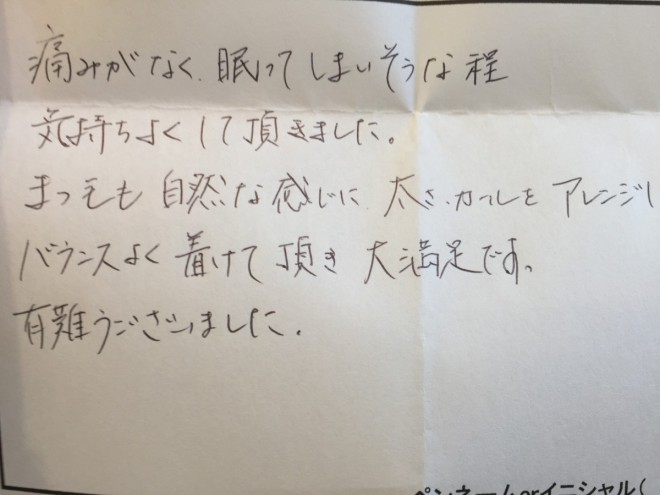 痛みがなく、眠ってしまいそうな程
気持ちよくして頂きました。
まつ毛も自然な感じに太さ、カールをアレンジし
バランスよく着けて頂き大満足です。
有難うございました。
ペンネームorイニシャル(